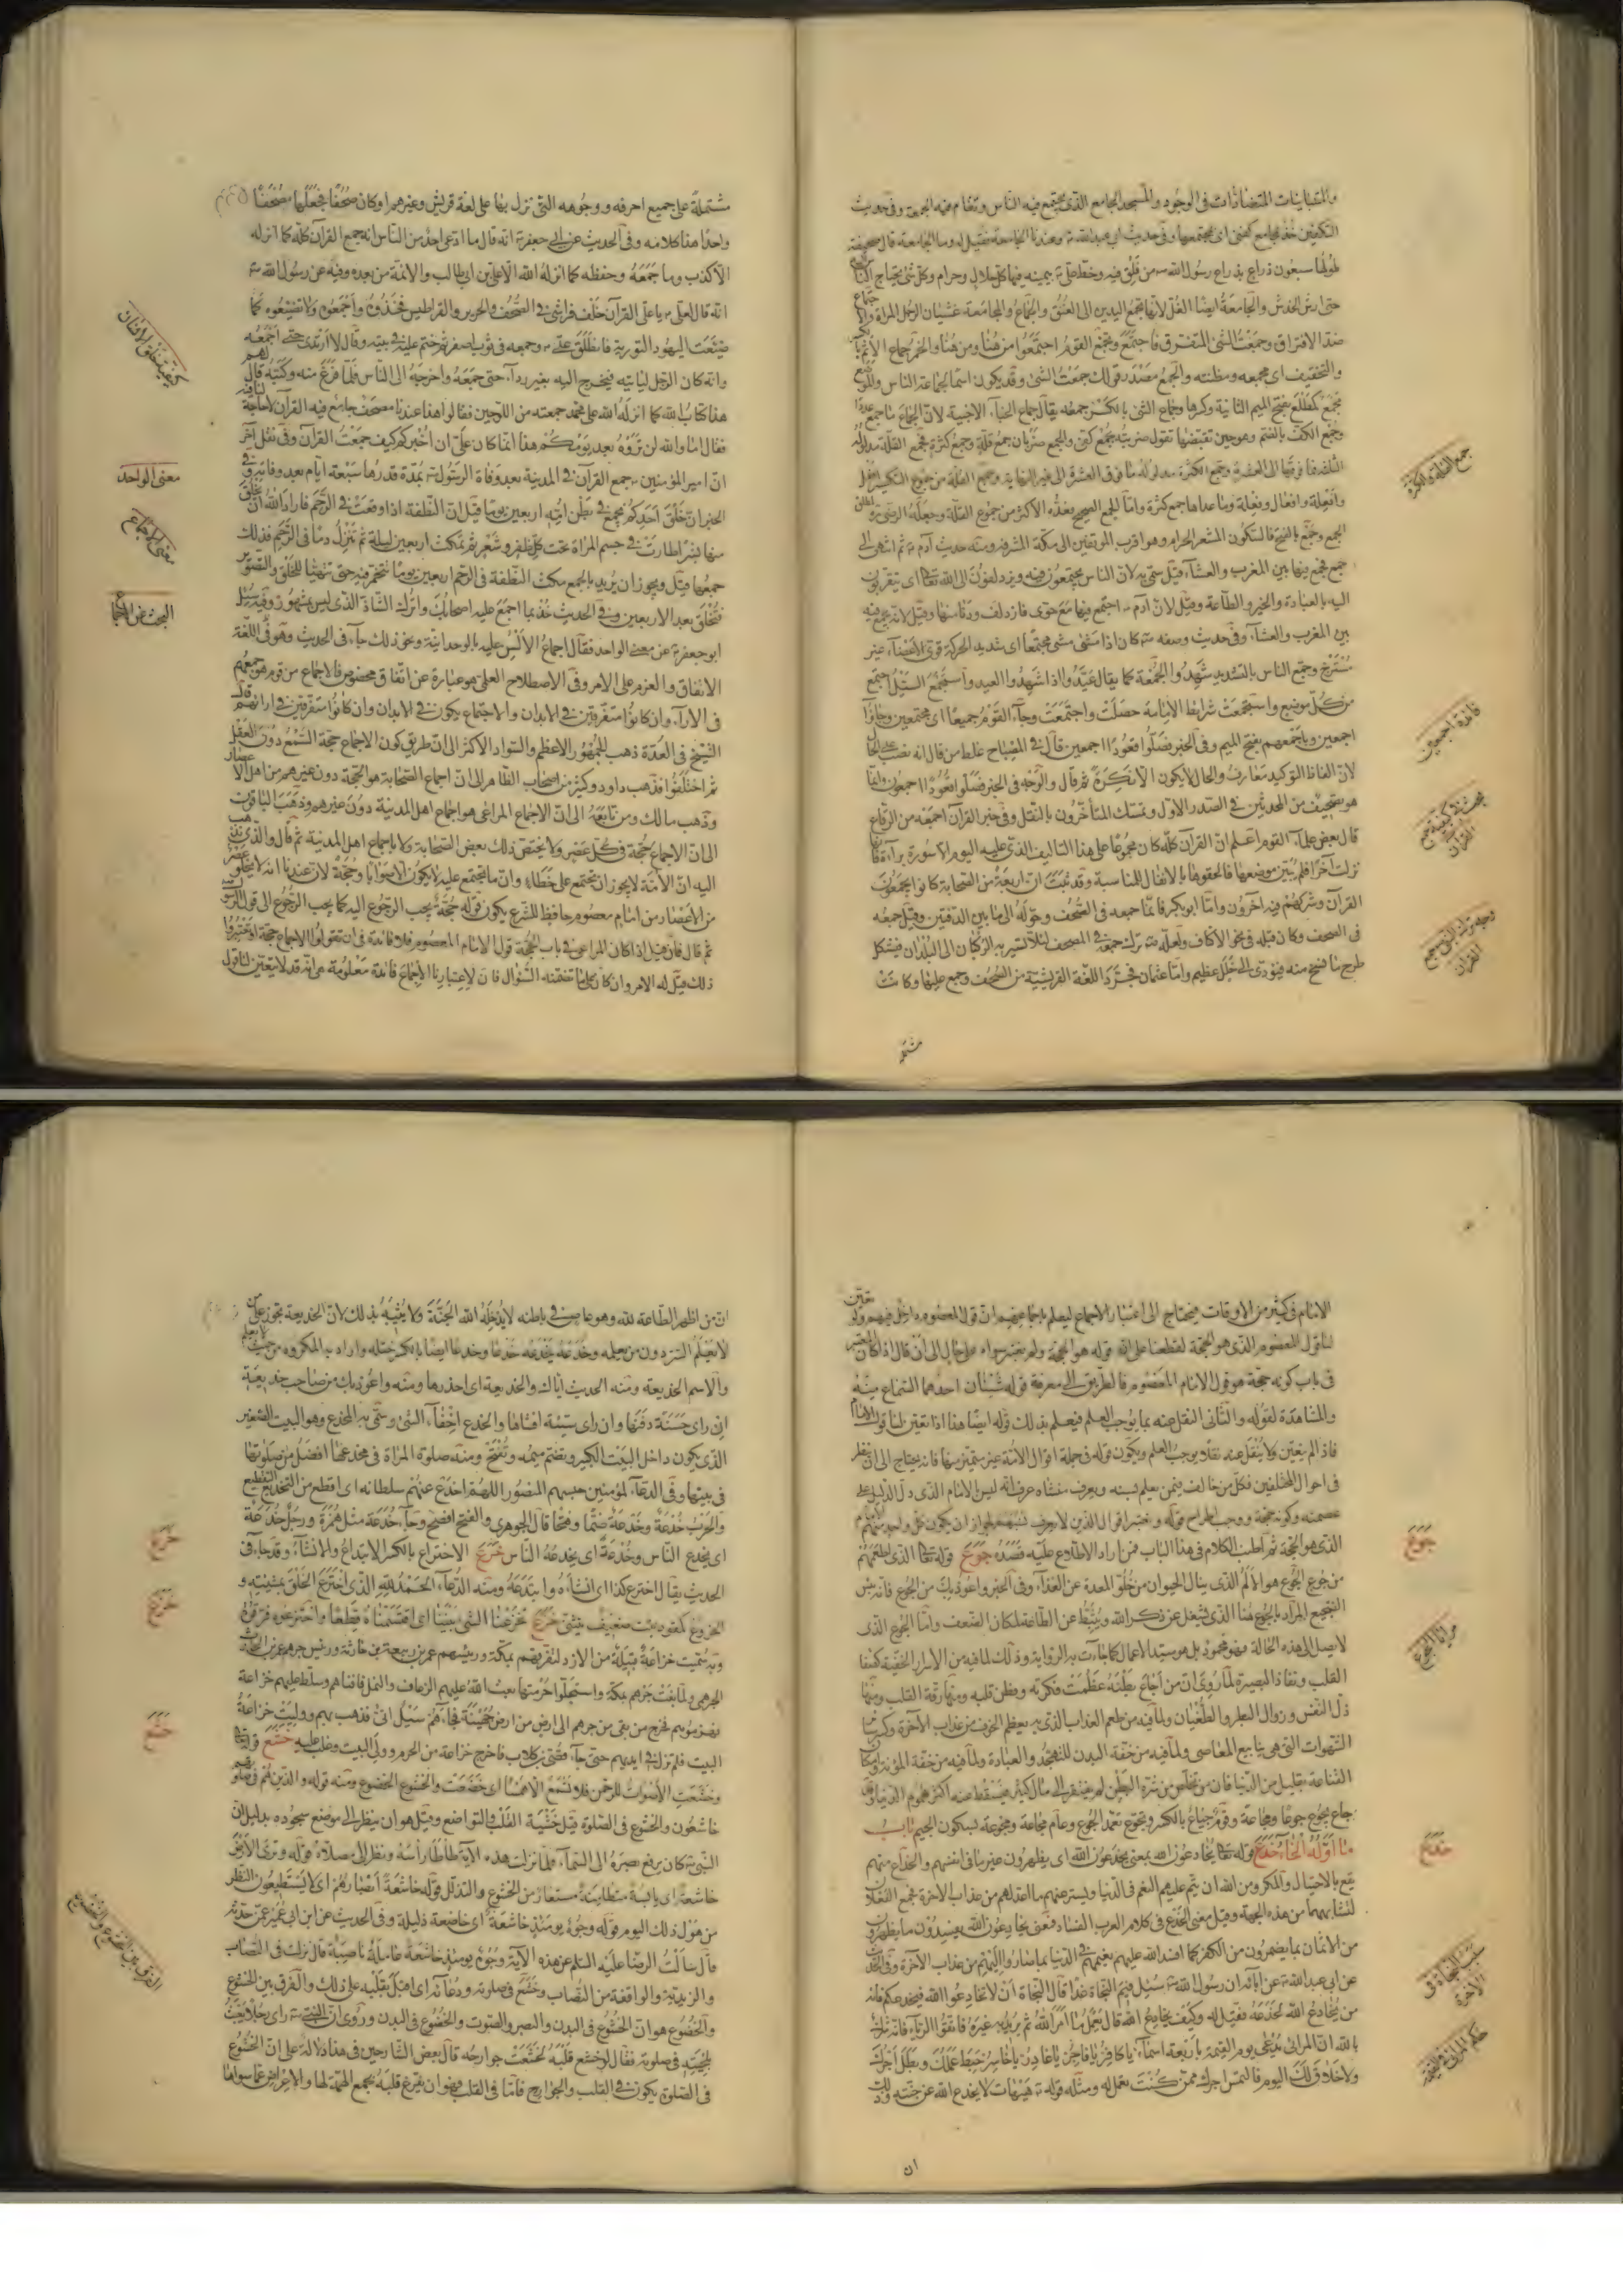 والمتباينات المتضادات في الوجود والمسجد الجامع الذي يجتمع فيه الناس وتقام فيه الجمعة وفي حديث
طولها سبعون ذراع بذراع رسول الله من فلق فيه وخط علي بيمينه فيها كل حلال وحرام وكل شئ يحتاج الناس
حتى ارش الخدش والجامعة ايضا الغل لانها تجمع اليدين الى العنق والجماع والمجامعة غشيان الرجل المراة والاجتماع
ضد الافتراق وجمعت الشئ المتفرق فاجتمع وتجمع القوم اجتمعوا من هنا ومن هنا والخمر جماع الاثم بالكسر
والتخفيف اى مجمعه ومظنته والجمع مصدر قولك جمعت الشئ وقد يكون اسما لجماعة الناس والموضع
مجمع كمطلع بفتح الميم الثانية وكسرها وجماع الشئ بالكسر جمعه يقال جماع الخباء الاخبية لان الجماع ما جمع عددا
وجمع الكف بالضم وهو حين تقبضها تقول ضربته بجمع كفي والجمع ضربان جمع قلة وجمع كثرة فجمع القلة مدلوله
الثلثة فما فوقها الى العشرة وجمع الكثرة مدلوله ما فوق العشرة الى غير النهاية وجموع القلة من جموع التكسير افعل
وافعلة وافعال وفعلة وما عداها جمع كثرة واما الجمع الصحيح
الجمع وجمع بالفتح فالسكون المشعر الحرام وهو اقرب الموقفين الى مكة المشرفة ومنه حديث آدم ثم انتهى الى
جمع فجمع فيها بين المغرب والعشاء قيل سمي به لان الناس يجتمعون فيه ويزدلفون الى الله تعالى اى يتقربون
اليه بالعبادة والخير والطاعة وقيل لان آدم اجتمع فيها مع حوى فازدلف ودنا منها وقيل لانه يجمع فيه
بين المغرب والعشاء وفي حديث وصفه كان اذا مشى مشى مجتمعا اى شديد الحركة قوى الاعضاء غير
مسترخ وجمع الناس بالتشديد شهدوا الجمعة كما يقال عيدوا اذا شهدوا العيد واستجمع السيل اجتمع
من كل موضع واستجمعت شرائط الامامة حصلت واجتمعت وجاء القوم جميعا اى مجتمعين وجاؤا
اجمعين وباجمعهم بفتح الميم وفي الخبر فصلوا قعودا اجمعين قال في المصباح غلط من قال انه نصب على الحال
لان الفاظ التوكيد معارف والحال لا يكون الا نكرة ثم قال والوجه في الخبر فصلوا قعودا اجمعون وانما
هو تصحيف من المحدثين في الصدر الاول وتمسك المتاخرون بالنقل وفي خبر القرآن اجمعه من الرقاع
قال بعض علماء القوم اعلم ان القرآن كله كان مجموعا على هذا التاليف الذي عليه اليوم الا سورة براءة فانها
نزلت آخرا فلم يبين موضعها فالحقوها بالانفال للمناسبة وقد ثبت ان اربعة من الصحابة كانوا يجمعون
القرآن وشركهم فيه آخرون واما ابو بكر فانما جمعه في الصحف وحوله الى ما بين الدفتين وقيل جمعه
في الصحف وكان قبله في نحو الاكتاف ولعله ترك جمعه في المصحف لئلا تسير به الركبان الى البلدان فيشكل
طرح ما نسخ منه فيؤدي الى خلل عظيم واما عثمان فجرد اللغة القرشية من الصحف وجمع عليها وكانت
جمع القلة والكثرة
فائدة اجمعين
مشتملة
مشتملة على جميع احرفه ووجوهه التي نزل بها على لغة قريش وغيرهم او كان صحفا فجعلها مصحفا
واحدا هذا كلامه وفي الحديث عن ابي جعفر انه قال ما ادعى احد من الناس انه جمع القرآن كله كما انزله
الا كذب وما جمعه وحفظه كما انزله الله الا علي بن ابي طالب والائمة من بعده وفيه عن رسول الله
انه قال لعلي يا علي القرآن خلف فراشي في الصحف والحرير والقراطيس فخذوه واجمعوه ولا تضيعوه كما
ضيعت اليهود التورية فانطلق علي وجمعه في ثوب اصفر ثم ختم عليه في بيته وقال لا ارتدي حتى اجمعه
وانه كان الرجل لياتيه فيخرج اليه بغير رداء حتى جمعه واخرجه الى الناس فلما فرغ منه وكتبه قال لهم
هذا كتاب الله كما انزله الله على محمد جمعته من اللوحين فقالوا هذا عندنا مصحف جامع فيه القرآن لا حاجة لنا فيه
فقال اما والله لن تروه بعد يومكم هذا انما كان علي ان اخبركم كيف جمعت القرآن وفي نقل آخر
ان امير المؤمنين جمع القرآن في المدينة بعد وفاة الرسول بمدة قدرها سبعة ايام بعد وفاته وفي
الخبر ان خلق احدكم يجمع في بطن امه اربعين يوما قيل ان النطفة اذا وقعت في الرحم فاراد الله ان يخلق
منها بشرا طارت في جسم المراة تحت كل ظفر وشعر ثم تمكث اربعين ليلة ثم تنزل دما في الرحم فذلك
جمعها قيل ويجوز ان يريد بالجمع مكث النطفة في الرحم اربعين يوما تتخمر فيه حتى تتهيئا للخلق والتصوير
فتخلق بعد الاربعين وفي الحديث خذ بما اجمع عليه اصحابك واترك الشاذ الذي ليس بمشهور وفيه سئل
ابو جعفر عن معنى الواحد فقال اجماع الالسن عليه بالوحدانية ونحو ذلك جاء في الحديث وهو في اللغة
الاتفاق والعزم على الامر وفي الاصطلاح العلمي هو عبارة عن اتفاق مخصوص فالاجماع من قوم هو جمعهم
في الآراء وان كانوا متفرقين في الابدان والاجتماع يكون في الابدان وان كانوا متفرقين في ارائهم قال
الشيخ في العدة ذهب الجمهور الاعظم والسواد الاكثر الى ان طريق كون الاجماع حجة السمع دون العقل
ثم اختلفوا فذهب داود وكثير من اصحاب الظاهر الى ان اجماع الصحابة هو الحجة دون غيرهم من اهل الاعصار
وذهب مالك ومن تابعه الى ان الاجماع المراعى هو اجماع اهل المدينة دون غيرهم وذهب الباقون
الى ان الاجماع حجة في كل عصر ولا يختص ذلك بعض الصحابة ولا باجماع اهل المدينة ثم قال والذي نذهب
اليه ان الامة لا يجوز ان تجتمع على خطاء وان ما تجتمع عليه لا يكون الا صوابا وحجة لان عندنا انه لا يخلو عصر
من الاعصار من امام معصوم حافظ للشرع يكون قوله حجة يجب الرجوع اليه كما يجب الرجوع الى قول الرسول
ثم قال فان قيل اذا كان المراعى في باب الحجة قول الامام المعصوم فلا فائدة في ان تقولوا الاجماع حجة او تعتبروا
ذلك قيل له الامر وان كان على ما تضمنه السؤال فان لاعتبارنا الاجماع فائدة معلومة هي انه قد لا يتعين لنا قول
معنى الواحد
معنى الاجماع
البحث عن الاجماع
الامام في كثير من الاوقات فيحتاج الى اعتبار الاجماع ليعلم باجماعهم ان قول المعصوم داخل فيهم ولو تعين
لنا قول المعصوم الذي هو الحجة لقطعنا على ان قوله هو الحجة ولم نعتبر سواه على حال الى ان قال اذا كان المعتبر
في باب كونه حجة هو قول الامام المعصوم فالطريق الى معرفة قوله شيئان احدهما السماع منه
والمشاهدة لقوله والثاني النقل عنه بما يوجب العلم فيعلم بذلك قوله ايضا هذا اذا تعين لنا قول الامام
فاذا لم يتعين ولا ينقل عنه نقلا يوجب العلم ويكون قوله في جملة اقوال الامة غير متميز منها فانه يحتاج الى ان ينظر
في احوال المختلفين فكل من خالف فيمن يعلم نسبه ويعرف منشاه عرف انه ليس الامام الذي دل الدليل على
عصمته وكونه حجة ووجب اطراح قوله ويعتبر اقوال الذين لا يعرف نسبهم لجواز ان يكون كل واحد منهم الامام
الذي هو الحجة ثم اطنب الكلام في هذا الباب فمن اراد الاطلاع عليه قصده جوع قوله تعالى الذي اطعمهم
من جوع الجوع هو الالم الذي ينال الحيوان من خلو المعدة عن الغذاء وفي الخبر واعوذ بك من الجوع فانه بئس
الضجيع المراد بالجوع هنا الذي يشغل عن ذكر الله ويثبط عن الطاعة لمكان الضعف واما الجوع الذي
لا يصل الى هذه الحالة فهو محمود بل هو سيد الاعمال كما جاءت به الرواية وذلك لما فيه من الاسرار الخفية كصفا
القلب ونفاذ البصيرة لما روي ان من اجاع بطنه عظمت فكرته وفطن قلبه ومنها رقة القلب ومنها
ذل النفس وزوال البطر والطغيان ولما فيه من طعم العذاب الذي به يعظم الخوف من عذاب الآخرة وكسر
الشهوات التي هي ينابيع المعاصي ولما فيه من خفة البدن للتهجد والعبادة ولما فيه من خفة المؤنة وامكان
القناعة بقليل من الدنيا فان من تخلص من شره البطن لم يفتقر الى مال كثير فيسقط عنه اكثر هموم الدنيا وقد
جاع يجوع جوعا ومجاعة وقوم جياع بالكسر وتجوع تعمد الجوع وعام مجاعة ومجوعة بسكون الجيم باب
ما اوله الخاء خدع قوله تعالى يخادعون الله بمعنى يخدعون الله اى يظهرون غير ما في انفسهم والخداع منهم
يقع بالاحتيال والمكر ومن الله ان يتم عليهم النعم في الدنيا ويستر عنهم ما اعد لهم من عذاب الآخرة فجمع الفعلا
لتشابههما من هذه الجهة وقيل معنى الخدع في كلام العرب الفساد فمعنى يخادعون الله يفسدون ما يظهرون
من الايمان بما يضمرون من الكفر كما افسد الله عليهم نعيمهم في الدنيا بما صاروا اليه من عذاب الآخرة وفي الحديث
عن ابي عبد الله عن آبائه ان رسول الله سئل فيم النجاة غدا قال النجاة ان لا تخادعوا الله فيخدعكم فانه
من يخادع الله يخدعه فقيل له وكيف يخادع الله قال يعمل بما امر الله ثم يريد به غيره فاتقوا الرياء فانه شرك
بالله ان المرائي يدعى يوم القيمة باربعة اسماء يا كافر يا فاجر يا غادر يا خاسر حبط عملك وبطل اجرك
ولا خلاق لك اليوم فالتمس اجرك ممن كنت تعمل له ومثله قوله هيهات لا يخدع الله عن جنته وذلك
جوع
خدع
سبب النجاة في الآخرة
ان
ان من اظهر الطاعة لله وهو عاص في باطنه لا يدخله الله الجنة ولا يثيبه بذلك لان الخديعة تجوز على من
لا يعلم السر دون من يعلمه وخدعه يخدعه خدعا وخدعا ايضا بالكسر ختله واراد به المكروه من حيث لا يعلم
والاسم الخديعة ومنه الحديث اياك والخديعة اى احذرها ومنه واعوذ بك من صاحب خديعة
ان راى حسنة دفنها وان راى سيئة افشاها والخدع اخفاء الشئ وسمي به المخدع وهو البيت الصغير
الذي يكون داخل البيت الكبير وتضم ميمه وتفتح ومنه صلوة المراة في مخدعها افضل من صلوتها
في بيتها وفي الدعاء للمؤمنين اللهم اخدع عنهم سلطانه اى اقطع من التخديع التقطيع
والحرب خدعة وخدعة ضما وفتحا قال الجوهري والفتح افصح وجاء خدعة مثل همزة ورجل خدعة
اى يخدع الناس وخدعة اى يخدعه الناس خرع الاختراع بالكسر الابتداع والانشاء وقد جاء في
الحديث يقال اخترع كذا اى انشاءه وابتدعه ومنه الدعاء الحمد لله الذي اخترع الخلق بمشيته و
الخروع كمقود نبت ضعيف يتثنى خزع تخزعنا الشئ بيننا اى اقتسمناه قطعا واختزعوه فرقوه
وبه سميت خزاعة قبيلة من الازد لتفرقهم بمكة ورئيسهم عمرو بن ربيعة بن حارثة ورئيس جرهم عمرو بن الحارث
الجرهمي ولما بغت جرهم بمكة واستحلوا حرمتها بعث الله عليهم الرعاف والنمل فافناهم وسلط عليهم خزاعة
فهزموهم فخرج من بقي من جرهم الى ارض من ارض جهينة فجاءهم سيل اتي فذهب بهم ووليت خزاعة
البيت فلم تزل في ايديهم حتى جاء قصي بن كلاب فاخرج خزاعة من الحرم وولي البيت وغلب عليه خشع قوله تعالى
وخشعت الاصوات للرحمن فلا تسمع الا همسا اى خضعت والخشوع الخضوع ومنه قوله والذين هم في صلوتهم
خاشعون والخشوع في الصلوة قيل خشية القلب والتواضع وقيل هو ان ينظر الى موضع سجوده بدليل ان
النبي كان يرفع بصره الى السماء فلما نزلت هذه الآية طاطا راسه ونظر الى مصلاه قوله وترى الارض
خاشعة اى يابسة متطامنة مستعار من الخشوع والتذلل قوله خاشعة ابصارهم اى لا يستطيعون النظر
من هول ذلك اليوم قوله وجوه يومئذ خاشعة اى خاضعة ذليلة وفي الحديث عن ابن ابي عمير عمن حدثه
قال سالت الرضا عليه السلم عن هذه الآية وجوه يومئذ خاشعة عاملة ناصبة قال نزلت في النصاب
والزيدية والواقفة من النصاب وخشع في صلوته ودعائه اى اقبل بقلبه على ذلك والفرق بين الخشوع
والخضوع هو ان الخشوع في البدن والبصر والصوت والخضوع في البدن وروي ان النبي راى رجلا يعبث
بلحيته في صلوته فقال لو خشع قلبه لخشعت جوارحه قال بعض الشارحين في هذا دلالة على ان الخشوع
في الصلوة يكون في القلب والجوارح فاما في القلب فهو ان يفرغ قلبه بجمع الهمة لها والاعراض عما سواها
خرع
خزع
خشع
الفرق بين الخشوع والخضوع